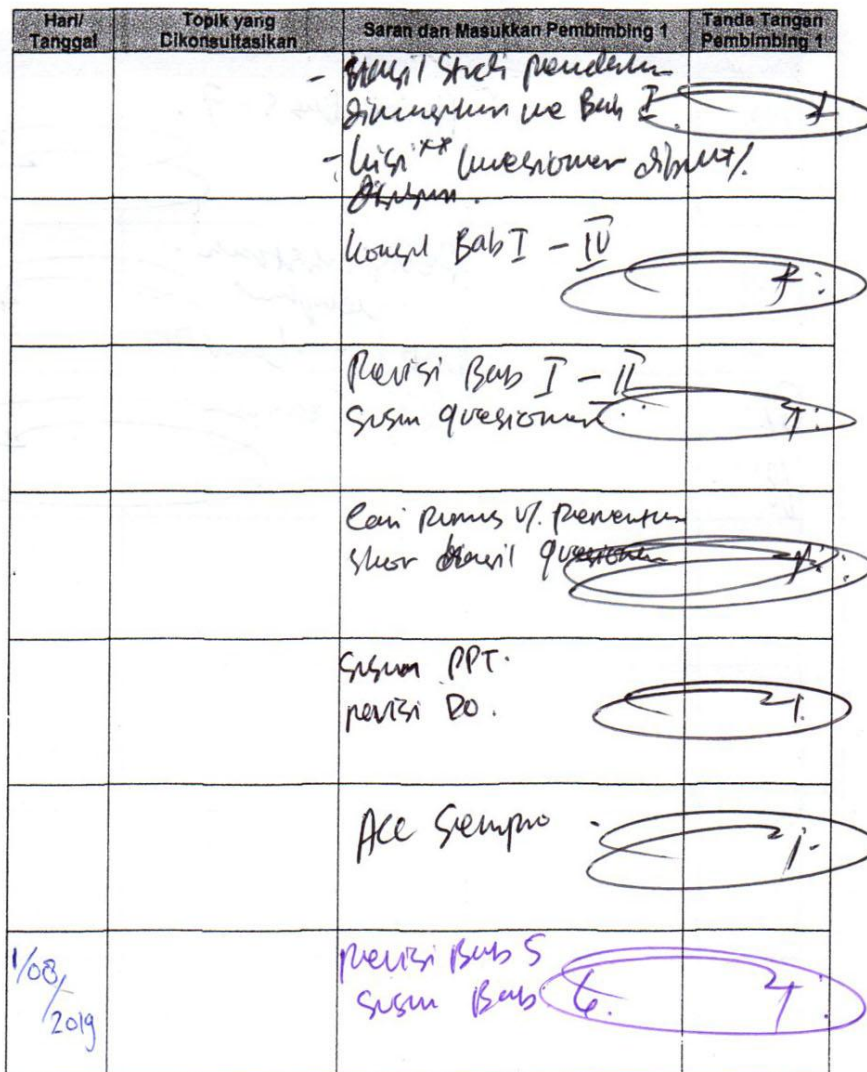 Hari/ Tanggal
Topik yang Dikonsultasikan
Saran dan Masukkan Pembimbing 1
Tanda Tangan Pembimbing 1
- Hasil Studi
ke Bab I
- kisi** kuesioner dibuat/
disusun.
konsul Bab I - IV
Revisi Bab I - II
susun quesioner
Cari rumus u/. penentuan
skor hasil quesioner
susun PPT.
revisi DO.
Acc Sempro
1/08/2019
Revisi Bab 5
susun Bab 6.